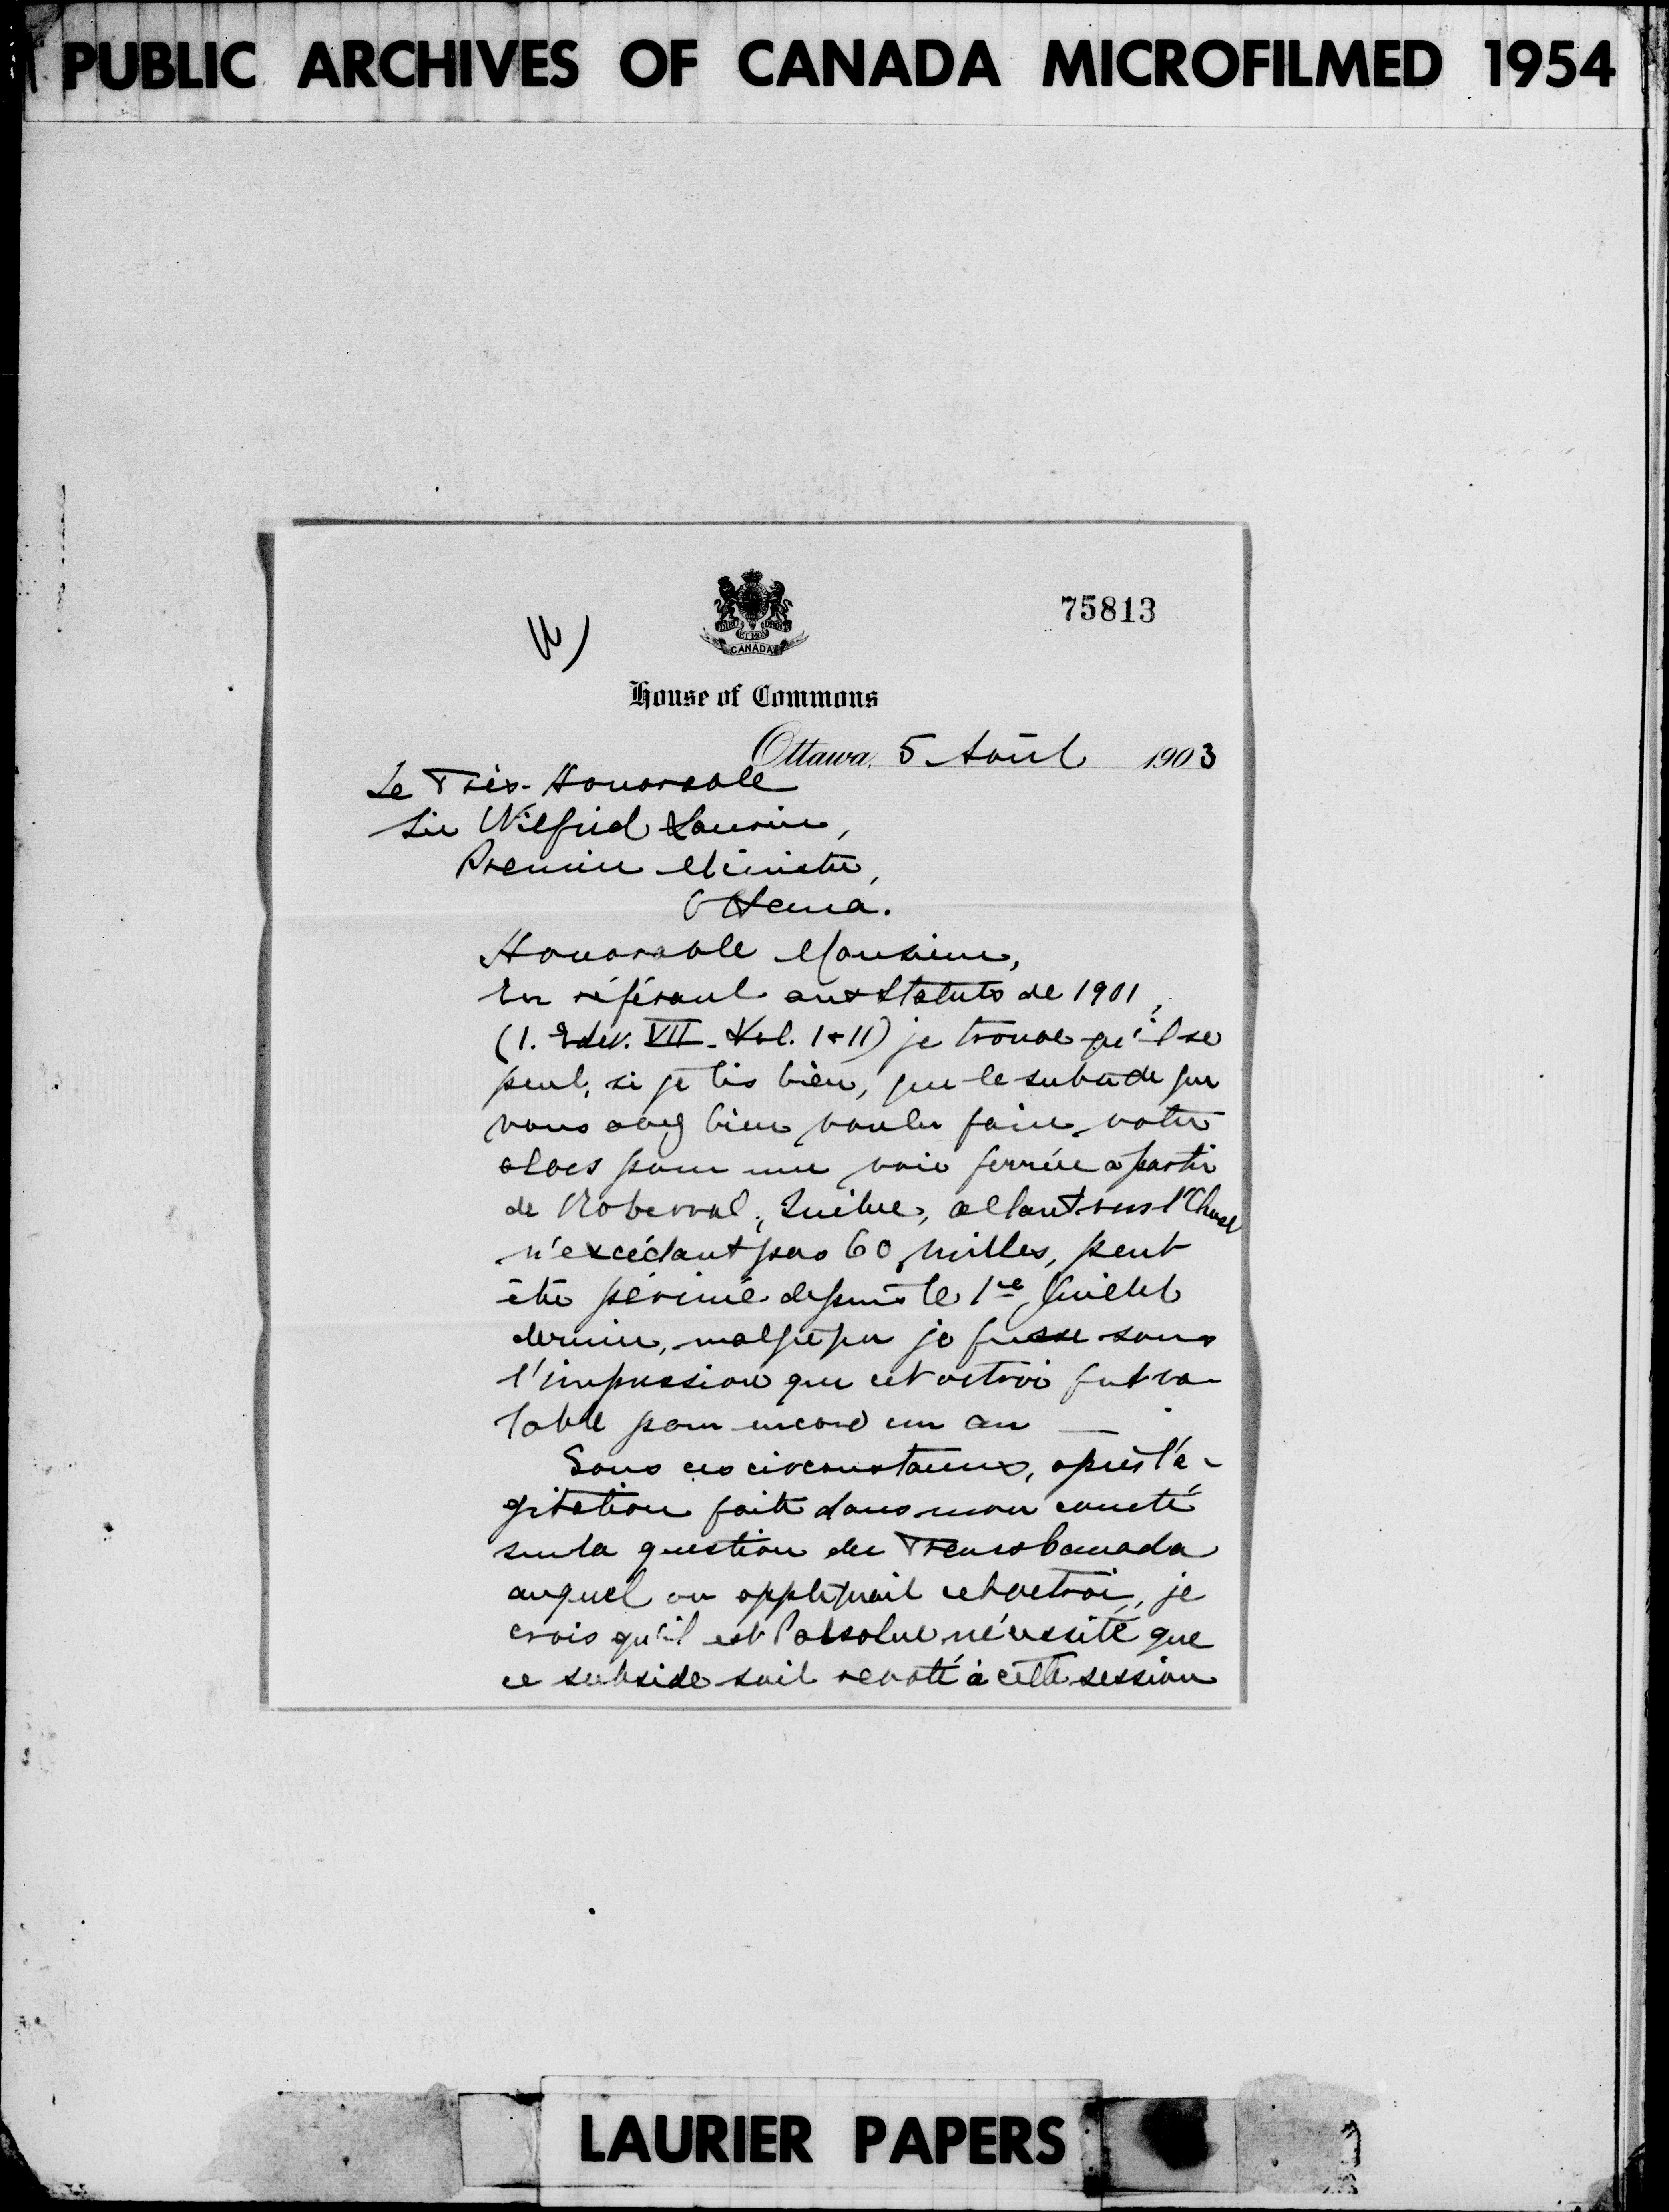 PUBLIC ARCHIVES OF CANADA MICROFILMED 1954
75813
CANADA
House of Commons
Ottawa, 5 Août 1903
Le Très-Honorable
Sir Wilfrid Laurier,
Premier Ministre,
Ottawa.
Honorable Monsieur,
En référant aux Statuts de 1901,
(1. Edw. VII. Vol. I & II) je trouve qu'il se
peut, si je lis bien, que le subside que
vous avez bien voulu faire voter
alors pour une voie ferrée à partir
de Roberval, Québec, allant vers l'Ouest
n'excédant pas 60 milles, peut
être périmé depuis le 1re Juillet
dernier, malgré que je fusse sous
l'impression que cet octroi fut va-
lable pour encore un an
Sous ces circonstances, après l'a-
gitation faite dans mon comté
sur la question du Trans Canada
auquel on appliquait cet octroi, je
crois qu'il est d'absolue nécessité que
ce subside soit revoté à cette session
LAURIER PAPERS